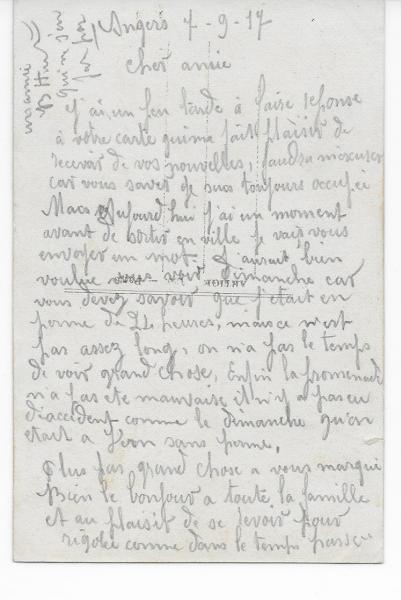 Angers 7-9-17
Cher amie
J'ai un peu tardé à faire reponse
à votre carte qui me fait plaisir de
recevoir de vos nouvelles, faudra mexuser
car vous savez je suis toujours occupé
Mais Aujourd'hui j'ai un moment
avant de sortir en ville je vais vous
envoyer un mot. J'aurait bien
voulue vous voir Dimanche car
vous devez savoir que j'etait en
perme de 24 heures, mais ce n'est
pas assez long, on n'a pas le temps
de voir grand chose, Enfin la promenade
n'a pas eté mauvaise il n'y a pas eu
d'accident comme le dimanche qu'on
etait a sans perme,
Plus pas grand chose a vous marqué
Bien le bonjour a toute la famille
et au plaisir de se revoir pour
rigolée comme dans le temps passer